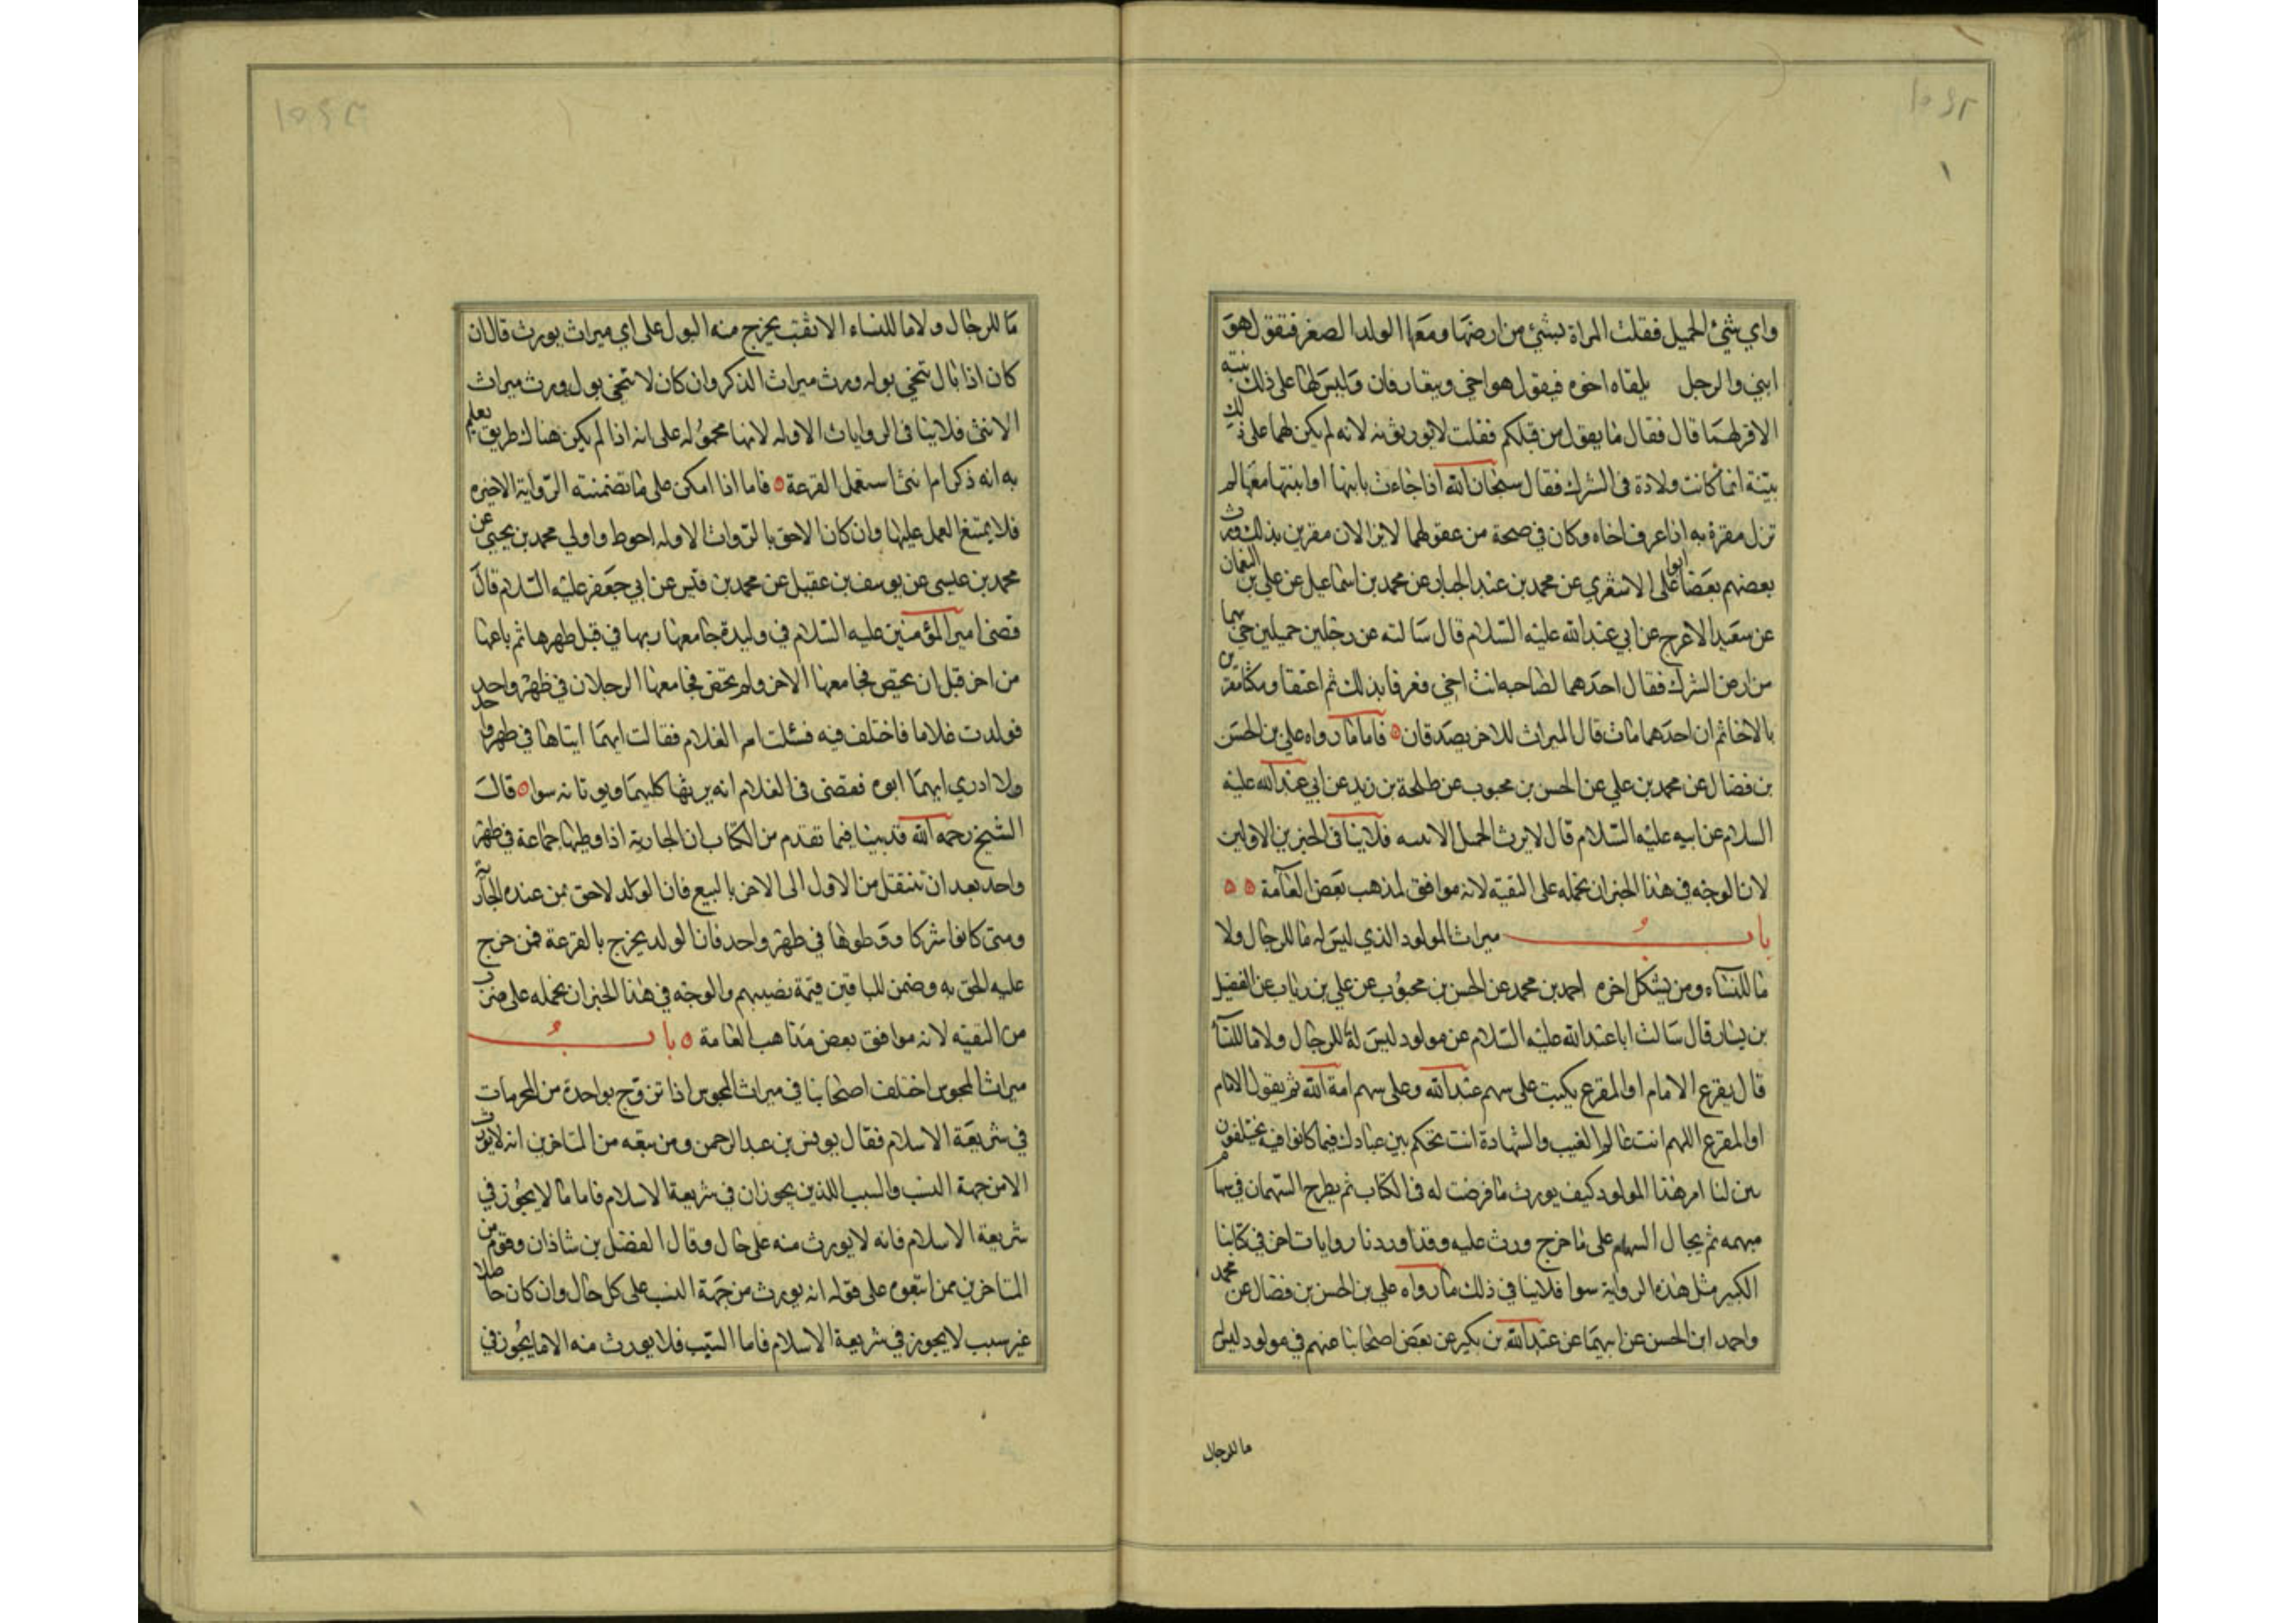 واي شئ الحميل فقلت المراة تسبئ من ارضها ومعها الولد الصغير فتقول هو
ابني والرجل يلقاه اخوه فيقول هو اخي ويتعارفان وليس لهما على ذلك بينة
الا قرلهما قال فقال ما يقول من قبلكم فقلت لا يورثونه لانه لم يكن لهما على ذلك
بينة انما كانت ولادة في الشرك فقال سبحان الله اذا جاءت بابنها او ابنتها معها لم
تزل مقرة به اذا عرف اخاه وكان في صحة من عقولهما لا يزالان مقرين بذلك ورث
بعضهم بعضا ابو على الاشعري عن محمد بن عبد الجبار عن محمد بن اسماعيل عن علي بن النعمان
عن سعيد الاعرج عن ابي عبد الله عليه السلام قال سالته عن رجلين حميلين جئ بهما
من ارض الشرك فقال احدهما لصاحبه انت اخي فعرفا بذلك ثم اعتقا ومكثا مقرين
بالاخا ثم ان احدهما مات قال الميراث للاخر يصدقان فاما ما رواه علي بن الحسن
بن فضال عن محمد بن علي عن الحسن بن محبوب عن طلحة بن زيد عن ابي عبد الله عليه
السلام عن ابيه عليه السلام قال لا يرث الحميل الا ببينه فلا ينافي الخبرين الاولين
لان الوجه في هذا الخبر ان نحمله على التقية لانه موافق لمذهب بعض العامة
باب ميراث المولود الذي ليس له ما للرجال ولا
ما للنساء ومن يشكل اخره احمد بن محمد عن الحسن بن محبوب عن علي بن رئاب عن الفضيل
بن يسار قال سالت ابا عبد الله عليه السلام عن مولود ليس له ما للرجال ولا ما للنسا
قال يقرع الامام او المقرع يكتب على سهم عبد الله وعلى سهم امة الله ثم يقول الامام
او المقرع اللهم انت عالم الغيب والشهادة انت تحكم بين عبادك فيما كانوا فيه يختلفون
بين لنا امر هذا المولود كيف يورث ما فرضت له في الكتاب ثم يطرح السهمان في سهام
مبهمه ثم يجال السهام على ما خرج ورث عليه وقد اوردنا روايات اخر في كتابنا
الكبير مثل هذه الرواية سوا فلا ينافي ذلك ما رواه علي بن الحسن بن فضال عن محمد
واحمد ابن الحسن عن ابيهما عن عبد الله بن بكير عن بعض اصحابنا عنهم في مولود ليس
ما للرجال
ما للرجال ولا ما للنساء الا ثقب يخرج منه البول على اي ميراث يورث قال ان
كان اذا بال يتنحى بوله ورث ميراث الذكر وان كان لا يتنحى بوله ورث ميراث
الانثى فلا ينافي الروايات الاوله لانها محمولة على انه اذا لم يكن هناك طريق يعلم
به انه ذكر ام انثى استعمل القرعة فاما اذا امكن على ما تضمنته الرواية الاخيره
فلا يمتنع العمل عليها وان كان الاحق بالروات الاوله احوط واولي محمد بن يحيى عن
محمد بن عيسى عن يوسف بن عقيل عن محمد بن قيس عن ابي جعفر عليه السلام قال
قضى امير المؤمنين عليه السلام في وليدة جامعها ربها في قبل طهرها ثم باعها
من اخر قبل ان تحيض فجامعها الاخر ولم تحض فجامعها الرجلان في طهر واحد
فولدت غلاما فاختلف فيه فسئلت ام الغلام فقالت ايهما اتياها في طهر واحد
ولا ادري ايهما ابوه فقضى في الغلام انه يرثهما كليهما ويرثانه سوا قال
الشيخ رحمه الله قد بينا فيما تقدم من الكتاب ان الجارية اذا وطيها جماعة في طهر
واحد بعد ان تنتقل من الاول الى الاخر بالبيع فان الولد لاحق بمن عنده الجارية
ومتى كانوا شركا ووطوها في طهر واحد فان الولد يخرج بالقرعة فمن خرج
عليه الحق به وضمن للباقين قيمة نصيبهم والوجه في هذا الخبر ان نحمله على ضرب
من التقيه لانه موافق بعض مذاهب العامة باب
ميراث المجوس اختلف اصحابنا في ميراث المجوس اذا تزوج بواحدة من المحرمات
في شريعة الاسلام فقال يونس بن عبد الرحمن ومن تبعه من المتاخرين انه لا يورث
الا من جهة النسب والسبب اللذين يجوزان في شريعة الاسلام فاما ما لا يجوز في
شريعة الاسلام فانه لا يورث منه على حال وقال الفضل بن شاذان وقوم من
المتاخرين ممن اتبعوه على قوله انه يورث من جهة النسب على كل حال وان كان حاصلا
غير سبب لا يجوز في شريعة الاسلام فاما السبب فلا يورث منه الا ما يجوز في